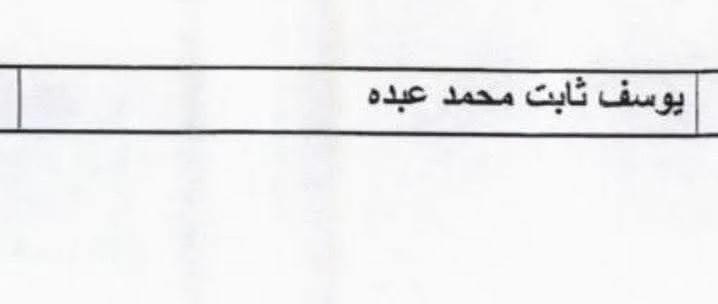 يوسف ثابت محمد عبده